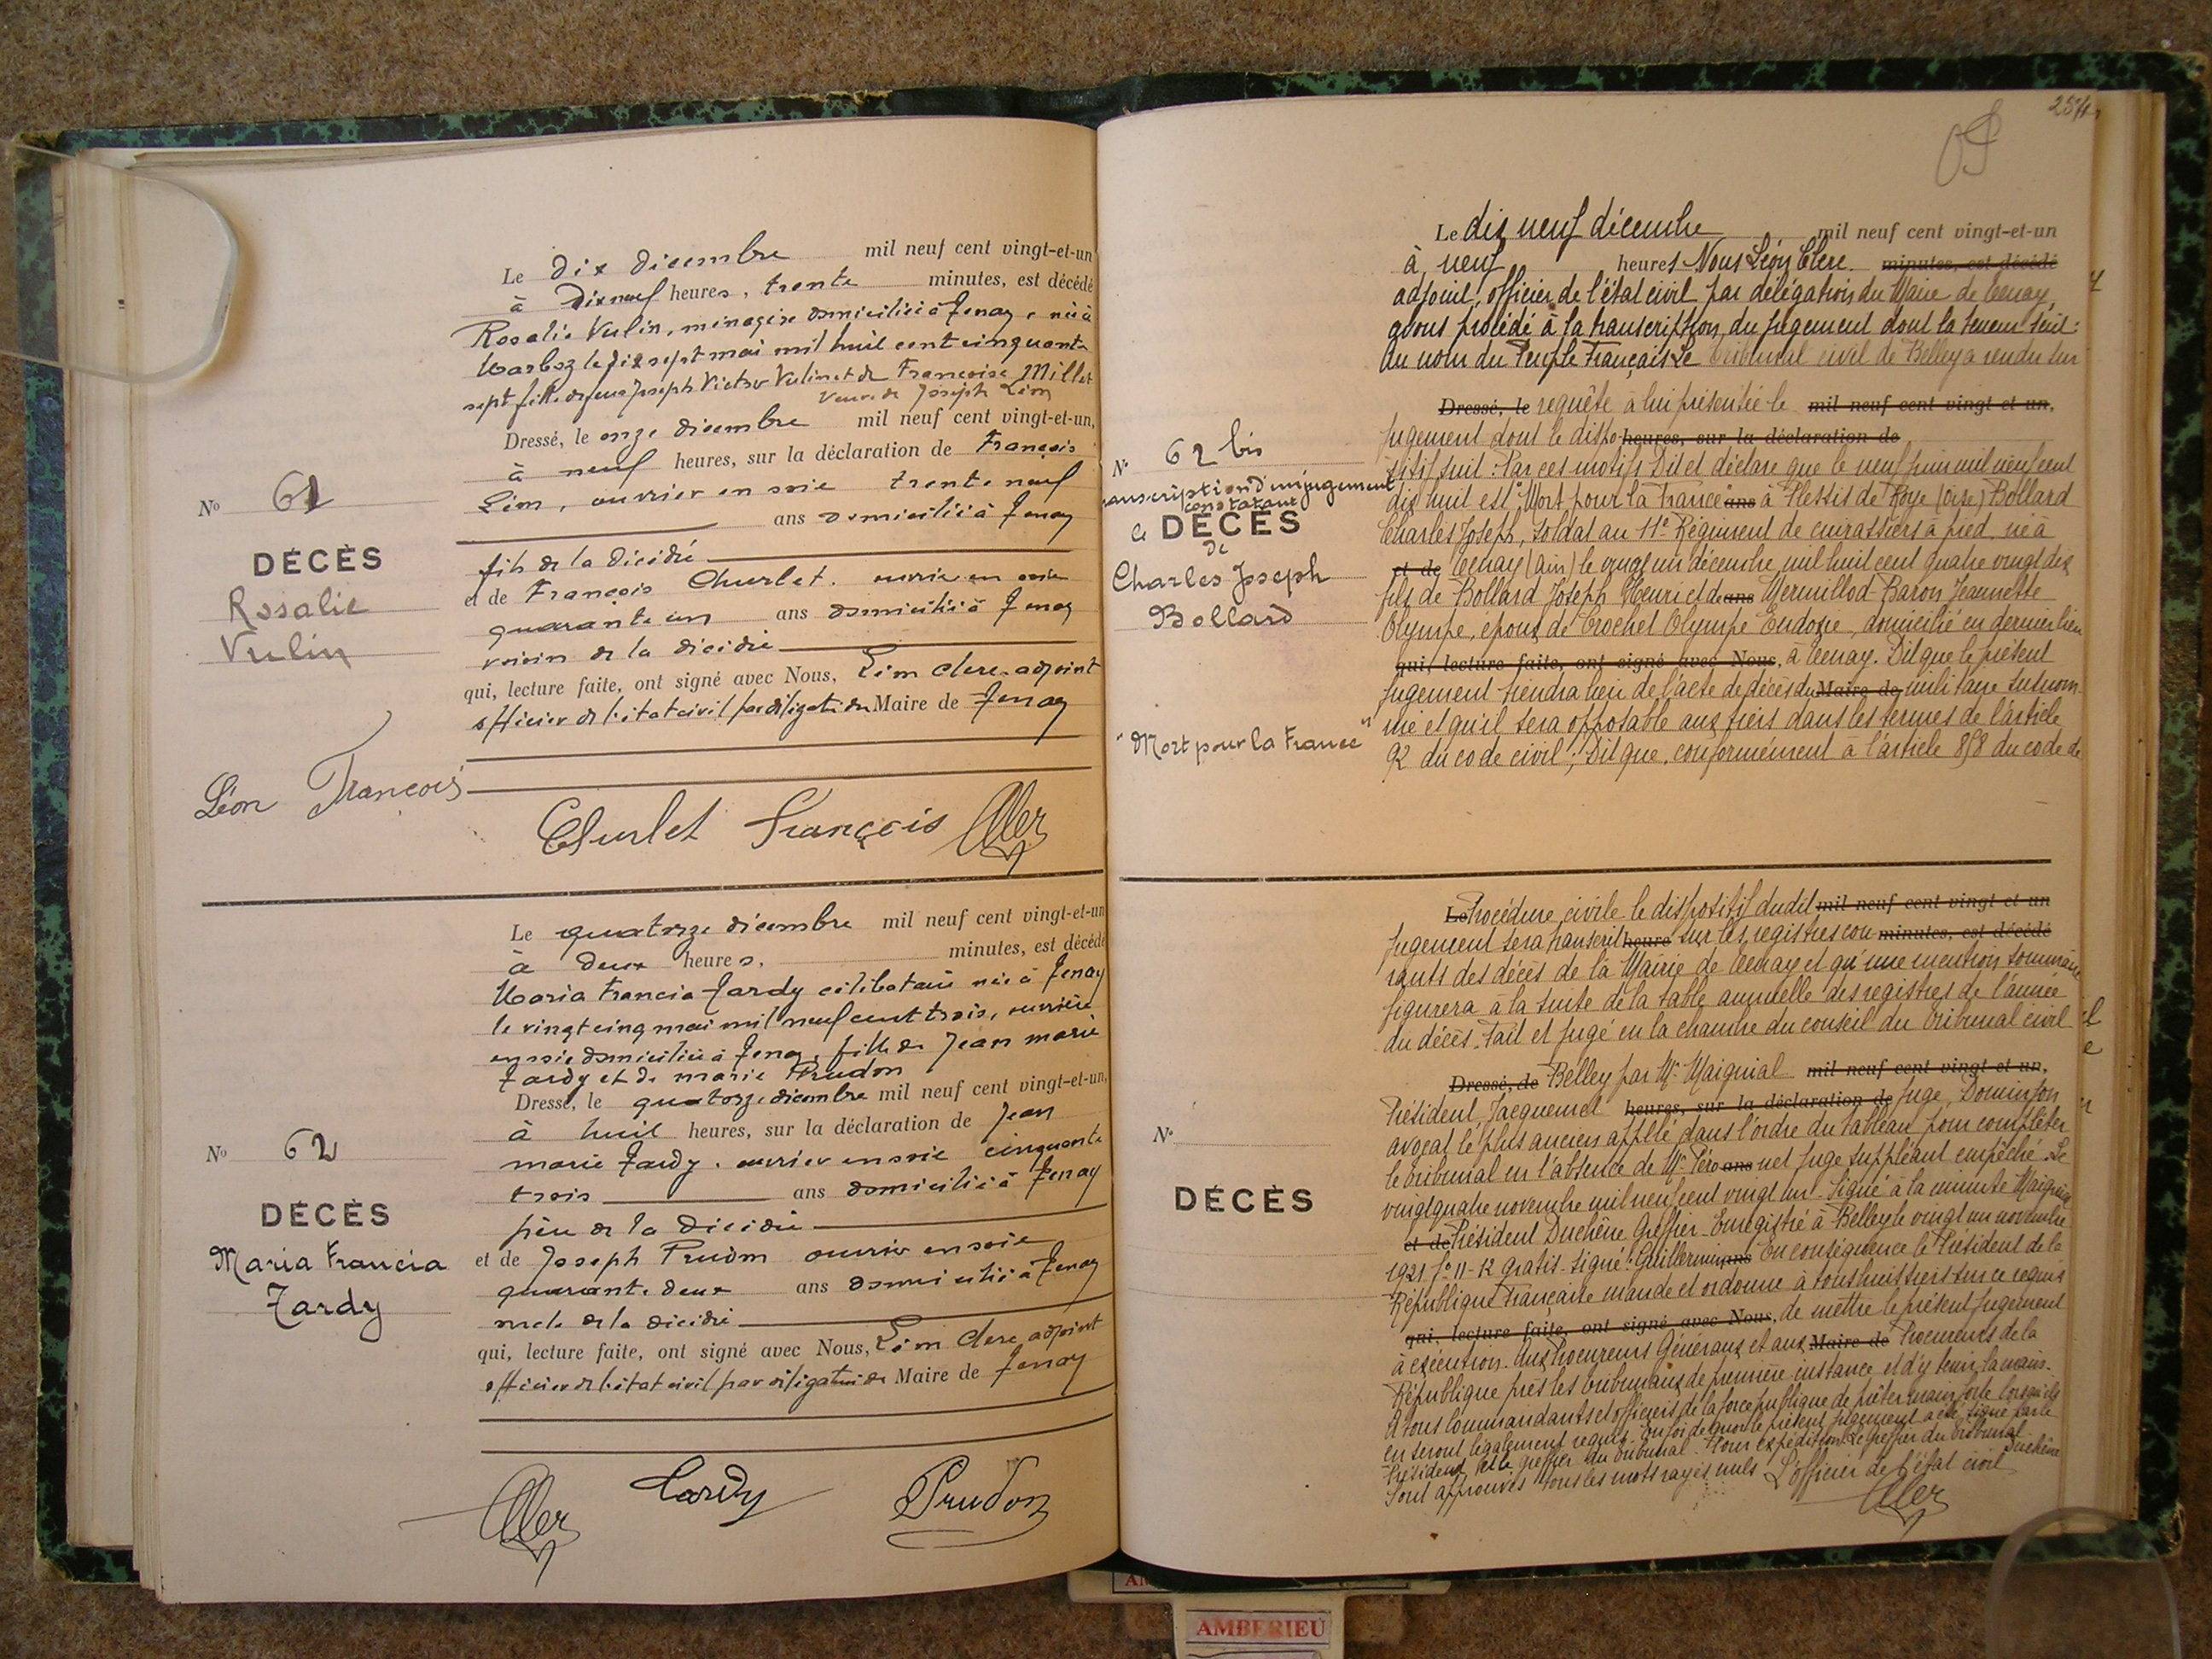 Le dix décembre mil neuf cent vingt-et-un
à Dix neuf heures, trente minutes, est décédé
Rosalie Vulin, ménagère domiciliée à Tenay, née à
Marboz le dix sept mai mil huit cent cinquante
sept fille de feus Joseph Victor Vulin et de Françoise Millet
Veuve de Joseph Léon
Dressé, le onze décembre mil neuf cent vingt-et-un,
à neuf heures, sur la déclaration de François
Léon, ouvrier en soie trente neuf
ans domicilié à Tenay
fils de la décédée
et de François Churlet. ouvrier en soie
quarante un ans domicilié à Tenay
voisin de la décédée
qui, lecture faite, ont signé avec Nous, Léon Clerc adjoint
officier de l'état civil par délégation du Maire de Tenay
No 61
DÉCÈS
Rosalie
Vulin
Léon François
Churlet François
Le quatorze décembre mil neuf cent vingt-et-un
à deux heures, minutes, est décédé
Maria Francia Tardy célibataire née à Tenay
le vingt cinq mai mil neuf cent trois, ouvrière
en soie domiciliée à Tenay, fille de Jean marie
Tardy et de marie Prudon
Dressé, le quatorze décembre mil neuf cent vingt-et-un,
à huit heures, sur la déclaration de Jean
marie Tardy. ouvrier en soie cinquante
trois ans domicilié à Tenay
père de la décédée
et de Joseph Prudon ouvrier en soie
quarante deux ans domicilié à Tenay
oncle de la décédée
qui, lecture faite, ont signé avec Nous, Léon Clerc adjoint
officier de l'état civil par délégation du Maire de Tenay
No 62
DÉCÈS
Maria Francia
Tardy
Tardy Prudon
254
Le dix neuf décembre mil neuf cent vingt-et-un
à neuf heures Nous Léon Clerc minutes, est décédé
adjoint, officier de l'état civil par délégation du Maire de Tenay,
avons procédé à la transcription du jugement dont la teneur suit:
Au nom du Peuple Français Le tribunal civil de Belley a rendu sur
Dressé, le requête à lui présentée le mil neuf cent vingt et un,
jugement dont le dispo heures, sur la déclaration de
sitif suit: Par ces motifs Dit et déclare que le neuf juin mil neuf cent
dix huit est "Mort pour la France" ans à Plessis de Roye (Oise) Bollard
Charles Joseph, soldat au 11e Régiment de cuirassiers à pied, né à
et de Tenay (Ain) le vingt un décembre mil huit cent quatre vingt dix
fils de Bollard Joseph Henri et de ans Mermillod-Baron Jeannette
Olympe, époux de Crochet Olympe Eudoxie, domicilié en dernier lieu
qui, lecture faite, ont signé avec Nous, à Tenay. Dit que le présent
jugement tiendra lieu de l'acte de décès du Maire de militaire susnom
mé et qu'il sera opposable aux tiers dans les termes de l'article
92 du code civil; Dit que, conformément à l'article 858 du code de
No 62 bis
transcription d'un jugement
constatant
le DÉCÈS
de
Charles Joseph
Bollard
"Mort pour la France"
Le Procédure civile le dispositif dudit mil neuf cent vingt et un
jugement sera transcrit heure sur les registres cou minutes, est décédé
rants des décès de la Mairie de Tenay et qu'une mention sommaire
figurera à la suite de la table annuelle des registres de l'année
du décès. Fait et jugé en la chambre du conseil du tribunal civil
Dressé, de Belley par Mr Maignial mil neuf cent vingt et un,
Président, Jacquemet heures, sur la déclaration de juge, Dominjon
avocat le plus ancien appelé dans l'ordre du tableau pour compléter
le tribunal en l'absence de Mr ans juge suppléant empêché. Le
vingt quatre novembre mil neuf cent vingt un. Signé à la minute Maignial
et de Président Duchêne Greffier. Enregistré à Belley le vingt un novembre
1921 fo 11 - 12 gratis. signé: ans En conséquence le Président de la
République Française mande et ordonne à tous huissiers sur ce requis
qui, lecture faite, ont signé avec Nous, de mettre le présent jugement
à exécution. Aux Procureurs Généraux et aux Maire de Procureurs de la
République près les tribunaux de première instance et d'y tenir la main.
A tous Commandants et officiers de la force publique de prêter main forte lorsqu'ils
en seront légalement requis. En foi de quoi le présent jugement a été signé par le
Président et le greffier du tribunal. Pour expédition Le greffier du tribunal
Duchêne
Sont approuvés tous les mots rayés nuls L'officier de l'état civil
No
DÉCÈS
AMBERIEU